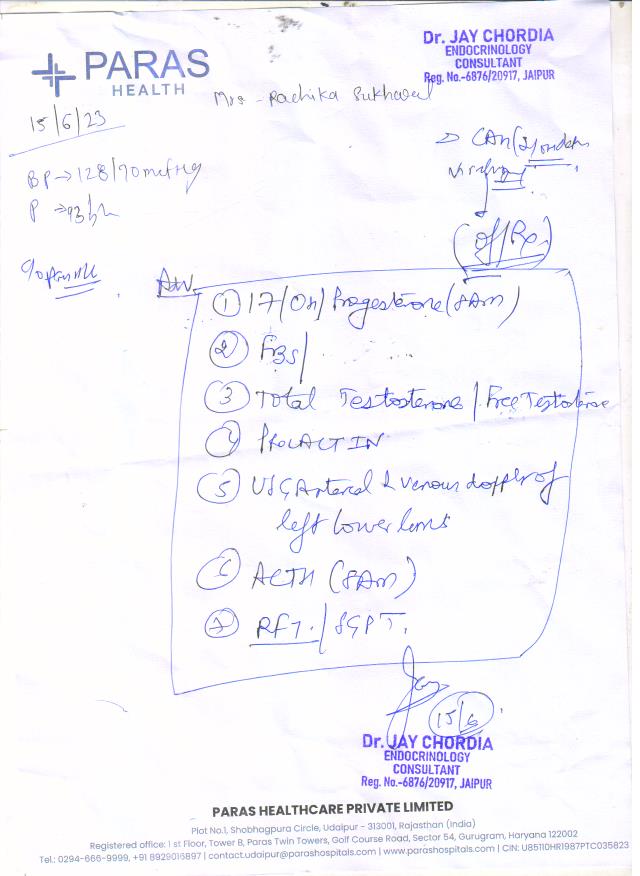 PARAS
HEALTH
Dr. JAY CHORDIA
ENDOCRINOLOGY
CONSULTANT
Reg. No.-6876/20917, JAIPUR
Mrs - Rachika Sukhawal
15/6/23
BP → 128/90 mmHg
P → 93
CAH
(off/Rx)
Adv.
① 17/OH/Progesterone (8AM)
② FBS/
③ Total Testosterone / Free Testosterone
④ PROLACTIN
⑤ USG Arterial & Venous doppler of
left lower limb
⑥ ACTH (8AM)
⑦ RFT. / SGPT.
15/6
Dr. JAY CHORDIA
ENDOCRINOLOGY
CONSULTANT
Reg. No.-6876/20917, JAIPUR
PARAS HEALTHCARE PRIVATE LIMITED
Plot No.1, Shobhagpura Circle, Udaipur - 313001, Rajasthan (India)
Registered office: 1 st Floor, Tower B, Paras Twin Towers, Golf Course Road, Sector 54, Gurugram, Haryana 122002
Tel.: 0294-666-9999, +91 8929016897 | contact.udaipur@parashospitals.com | www.parashospitals.com | CIN: U85110HR1987PTC035823